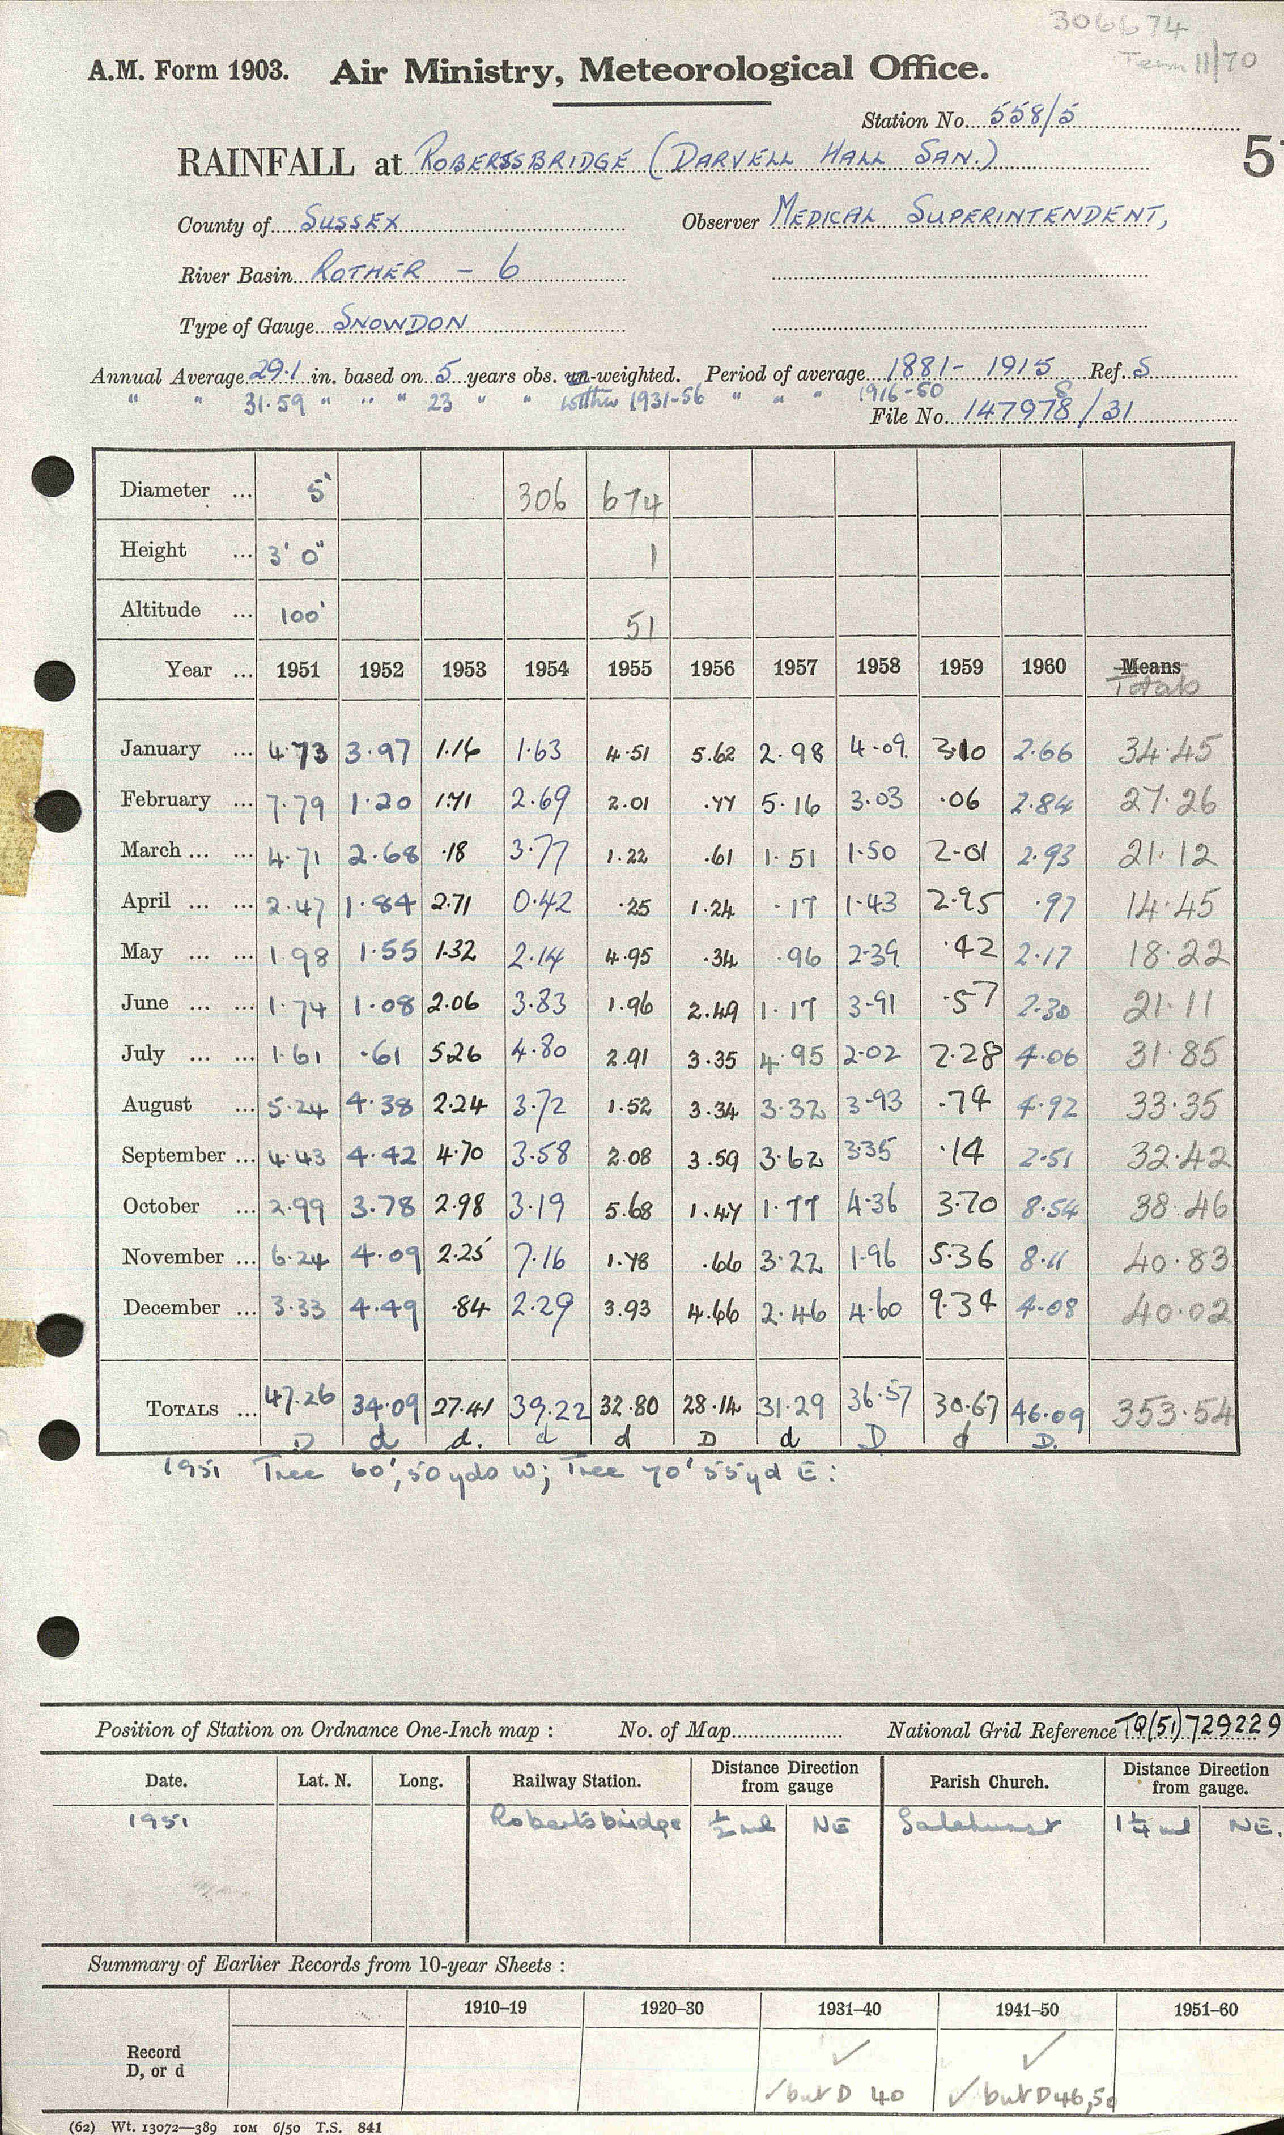 306674
Term 11/70
A.M. Form 1903. Air Ministry, Meteorological Office.
Station No. 558/5
RAINFALL at ROBERTSBRIDGE (DARVELL HALL SAN.) 5
County of SUSSEX Observer MEDICAL SUPERINTENDENT,
River Basin ROTHER – 6
Type of Gauge SNOWDON
Annual Average 29.1 in. based on 5 years obs. un-weighted. Period of average 1881 - 1915 Ref. S
" " 31.59 " " " 23 " " within 1931-56 " " " 1916-50 S
File No. 147978/31
Diameter ... 5" 306 674
Height ... 3' 0" 1
Altitude ... 100' 51
Year ... 1951 1952 1953 1954 1955 1956 1957 1958 1959 1960 Means
Totals
January ... 4.73 3.97 1.16 1.63 4.51 5.62 2.98 4.09 3.10 2.66 34.45
February ... 7.79 1.20 1.71 2.69 2.01 .77 5.16 3.03 .06 2.84 27.26
March ... ... 4.71 2.68 .18 3.77 1.22 .61 1.51 1.50 2.01 2.93 21.12
April ... ... 2.47 1.84 2.71 0.42 .25 1.24 .17 1.43 2.95 .97 14.45
May ... ... 1.98 1.55 1.32 2.14 4.95 .34 .96 2.39 .42 2.17 18.22
June ... ... 1.74 1.08 2.06 3.83 1.96 2.49 1.17 3.91 .57 2.30 21.11
July ... ... 1.61 .61 5.26 4.80 2.91 3.35 4.95 2.02 2.28 4.06 31.85
August ... 5.24 4.38 2.24 3.72 1.52 3.34 3.32 3.93 .74 4.92 33.35
September ... 4.43 4.42 4.70 3.58 2.08 3.59 3.62 3.35 .14 2.51 32.42
October ... 2.99 3.78 2.98 3.19 5.68 1.47 1.77 4.36 3.70 8.54 38.46
November ... 6.24 4.09 2.25 7.16 1.78 .66 3.22 1.96 5.36 8.11 40.83
December ... 3.33 4.49 .84 2.29 3.93 4.66 2.46 4.60 9.34 4.08 40.02
TOTALS ... 47.26 34.09 27.41 39.22 32.80 28.14 31.29 36.57 30.67 46.09 353.54
D d d. d d D d D d D.
1951 Tree 60', 50 yds W; Tree 70' 55yd E:
Position of Station on Ordnance One-Inch map : No. of Map National Grid Reference TQ(51)729229
Date. Lat. N. Long. Railway Station. Distance Direction from gauge Parish Church. Distance Direction from gauge.
1951 Robertsbridge ½ ml NE Salehurst 1¼ ml NE.
Summary of Earlier Records from 10-year Sheets :
1910–19 1920–30 1931–40 1941–50 1951–60
Record ✓ ✓
D, or d
✓ but D 40 ✓ but D 46,50
(62) Wt. 13072—389 10M 6/50 T.S. 841